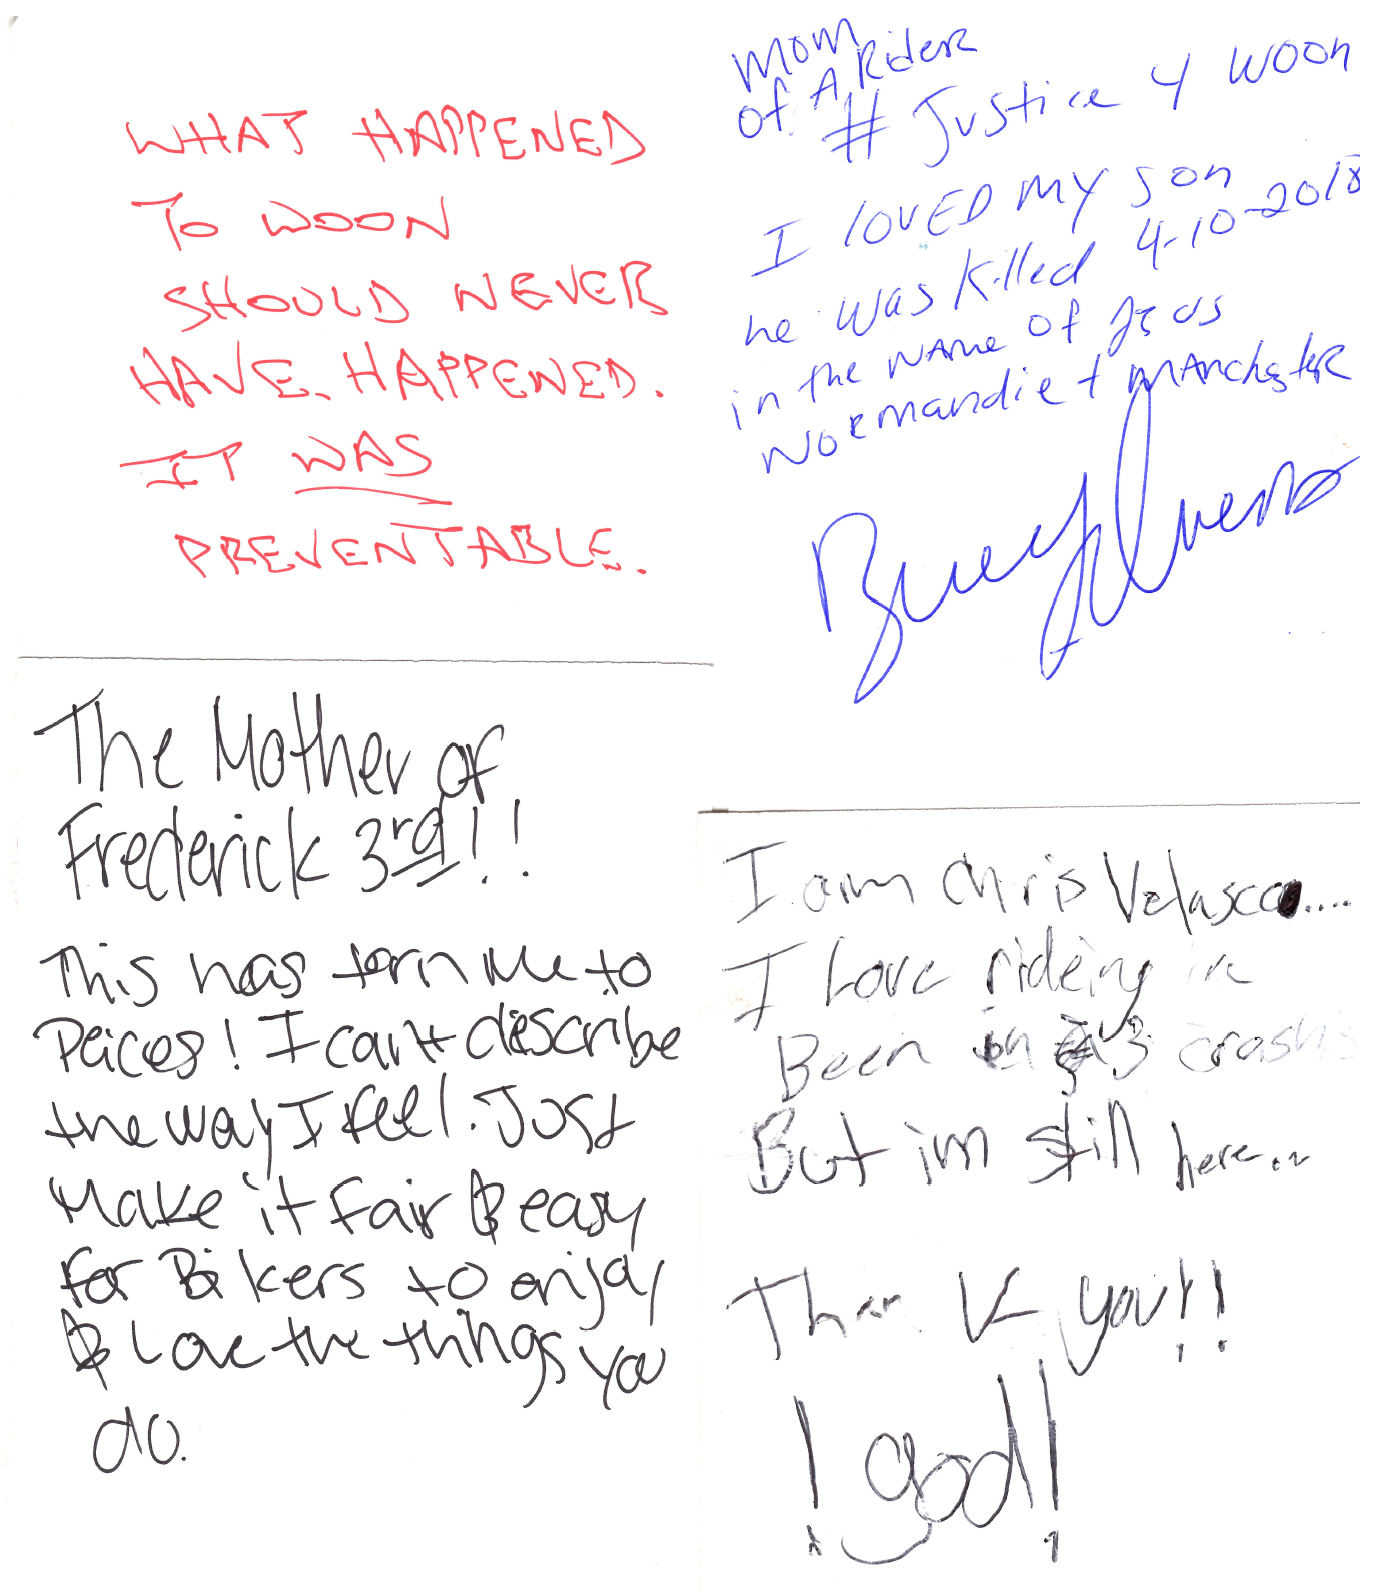 WHAT HAPPENED
TO WOON
SHOULD NEVER
HAVE HAPPENED.
IT WAS
PREVENTABLE.
Mom
of A Rider
# Justice 4 Woon
I LOVED MY son
he was killed 4-10-2018
in the NAme of Jesus
Normandie + MANchester
The Mother of
Frederick 3rd!!
This has torn Me to
Peices! I can't describe
the way I feel. Just
Make it Fair & easy
for Bikers to enjoy
& Love the things you
do.
I am Chris Velasco....
I Love rideing ive
Been in 3 crashs
But im still here...
Thank you!!
! god!